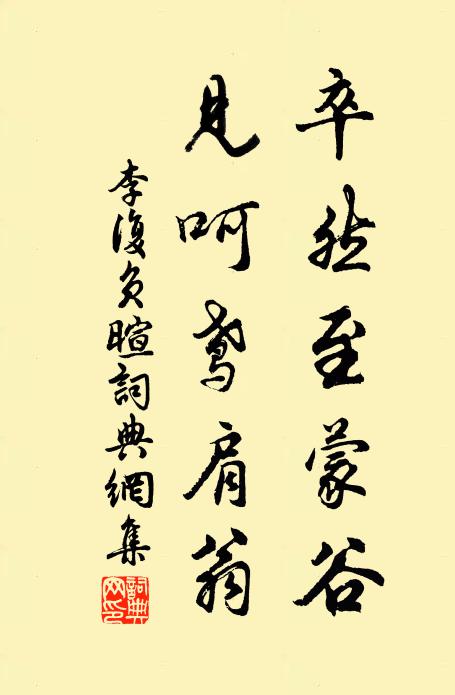 卒然至蒙谷
見呵鳶肩翁
李復負暄詞典網集
詞典網印